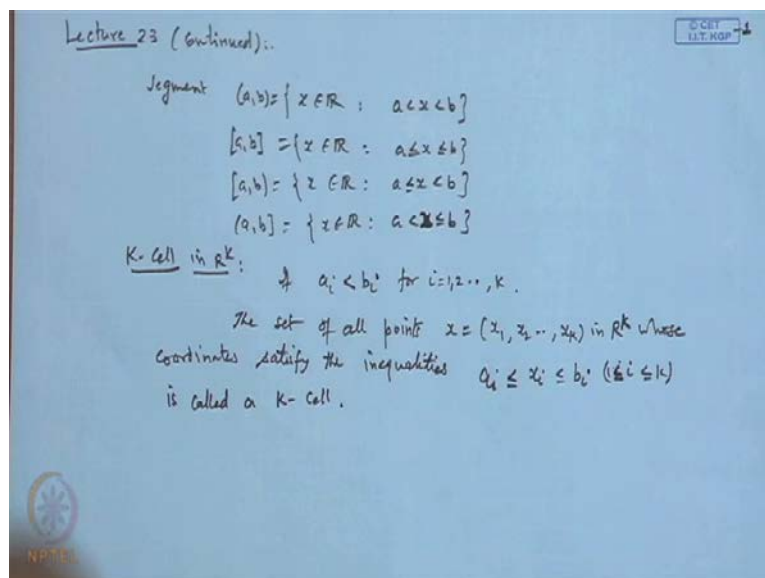 Lecture 23 (Continued):.
© CET
I.I.T. KGP
-1
Segment (a,b) = { x ∈ R : a < x < b }
[a,b] = { x ∈ R : a ≤ x ≤ b }
[a,b) = { x ∈ R : a ≤ x < b }
(a,b] = { x ∈ R : a < x ≤ b }
K-Cell in R^k :
If a_i < b_i for i=1,2..,K.
The set of all points x = (x_1, x_2 .., x_k) in R^k whose
coordinates satisfy the inequalities a_i ≤ x_i ≤ b_i (1 ≤ i ≤ k)
is called a K-Cell.
NPTEL